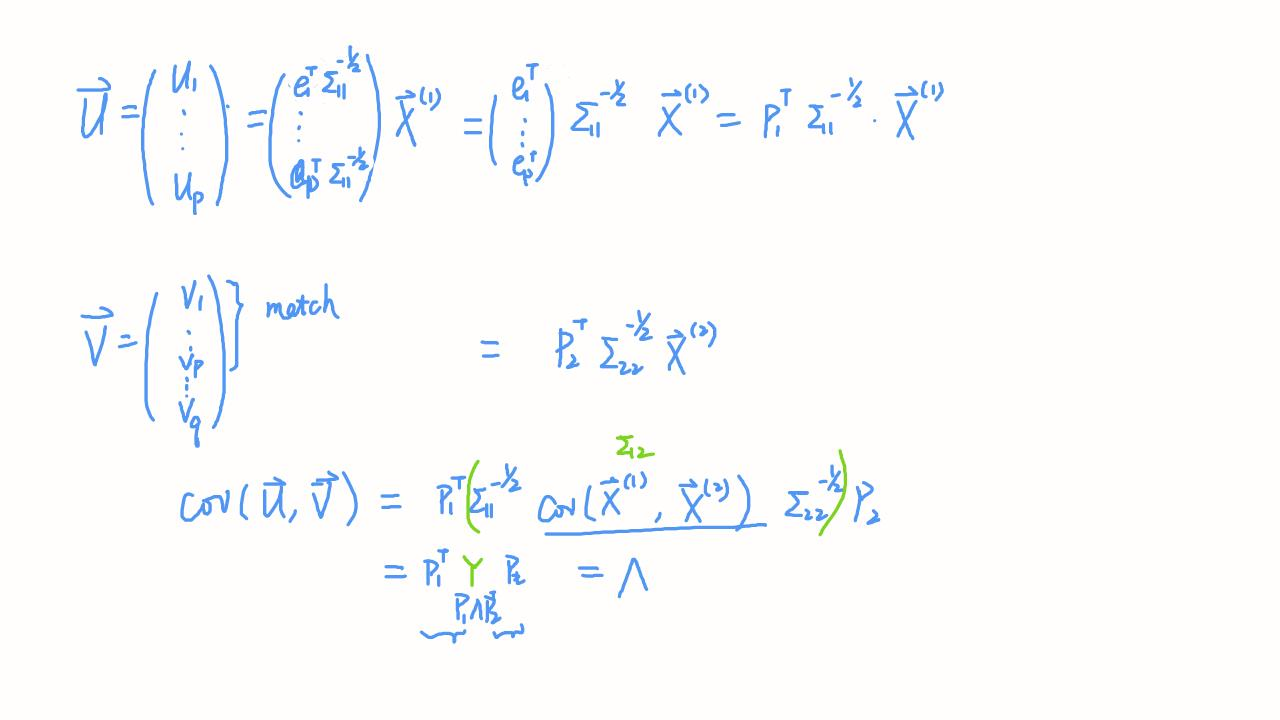 $\vec{U} = \begin{pmatrix} U_1 \\ \vdots \\ U_p \end{pmatrix} = \begin{pmatrix} e_1^T \Sigma_{11}^{-1/2} \\ \vdots \\ e_p^T \Sigma_{11}^{-1/2} \end{pmatrix} \vec{X}^{(1)} = \begin{pmatrix} e_1^T \\ \vdots \\ e_p^T \end{pmatrix} \Sigma_{11}^{-1/2} \vec{X}^{(1)} = P_1^T \Sigma_{11}^{-1/2} \cdot \vec{X}^{(1)}$
$\vec{V} = \left. \begin{pmatrix} V_1 \\ \vdots \\ V_p \\ \vdots \\ V_q \end{pmatrix} \right\} \text{match} = P_2^T \Sigma_{22}^{-1/2} \vec{X}^{(2)}$
$\Sigma_{12}$
$\text{cov}(\vec{U}, \vec{V}) = P_1^T \left( \Sigma_{11}^{-1/2} \underline{\text{cov}(\vec{X}^{(1)}, \vec{X}^{(2)})} \Sigma_{22}^{-1/2} \right) P_2$
$= P_1^T Y P_2 = \Lambda$
$P_1 \Lambda P_2^T$